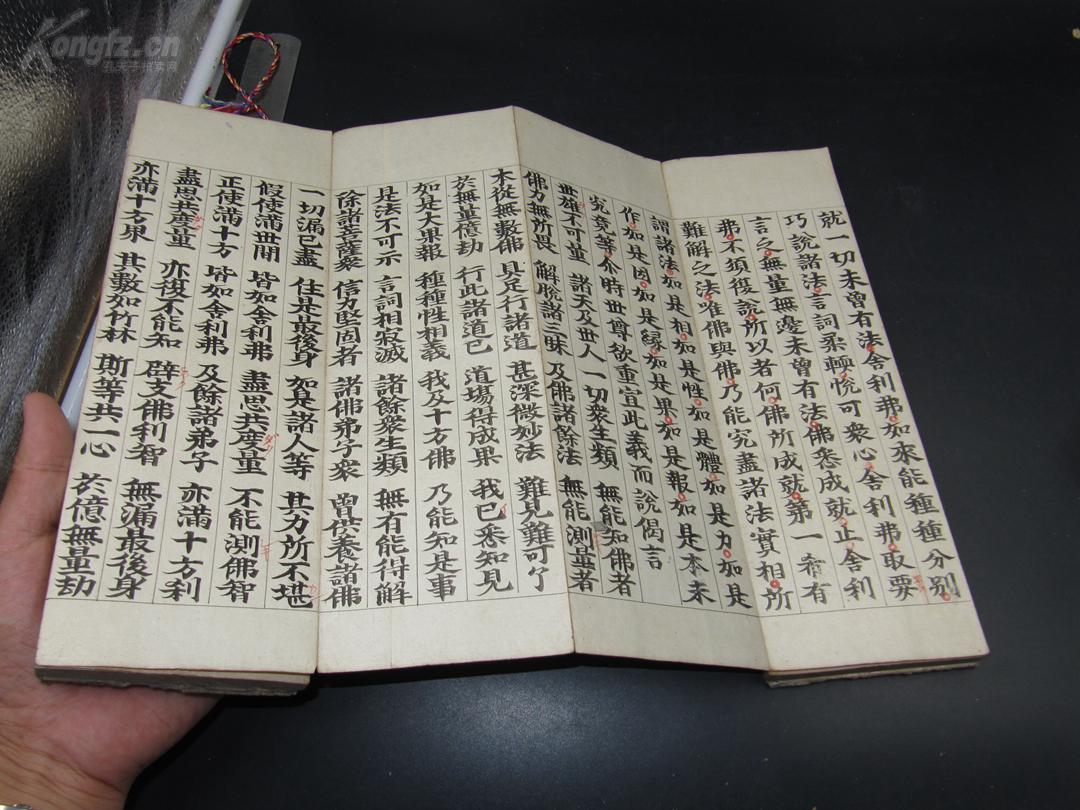 就一切未曾有法舍利弗如來能種種分別
巧說諸法言詞柔輭悅可衆心舍利弗取要
言之無量無邊未曾有法佛悉成就止舍利
弗不須復說所以者何佛所成就第一希有
難解之法唯佛與佛乃能究盡諸法實相所
謂諸法如是相如是性如是體如是力如是
作如是因如是緣如是果如是報如是本末
究竟等尒時世尊欲重宣此義而說偈言
世雄不可量 諸天及世人 一切衆生類 無能知佛者
佛力無所畏 解脫諸三昧 及佛諸餘法 無能測量者
本從無數佛 具足行諸道 甚深微妙法 難見難可了
於無量億劫 行此諸道已 道場得成果 我已悉知見
如是大果報 種種性相義 我及十方佛 乃能知是事
是法不可示 言詞相寂滅 諸餘衆生類 無有能得解
除諸菩薩衆 信力堅固者 諸佛弟子衆 曾供養諸佛
一切漏已盡 住是最後身 如是諸人等 其力所不堪
假使滿世間 皆如舍利弗 盡思共度量 不能測佛智
正使滿十方 皆如舍利弗 及餘諸弟子 亦滿十方刹
盡思共度量 亦復不能知 辟支佛利智 無漏最後身
亦滿十方界 其數如竹林 斯等共一心 於億無量劫
Kongfz.cn
孔夫子拍卖网